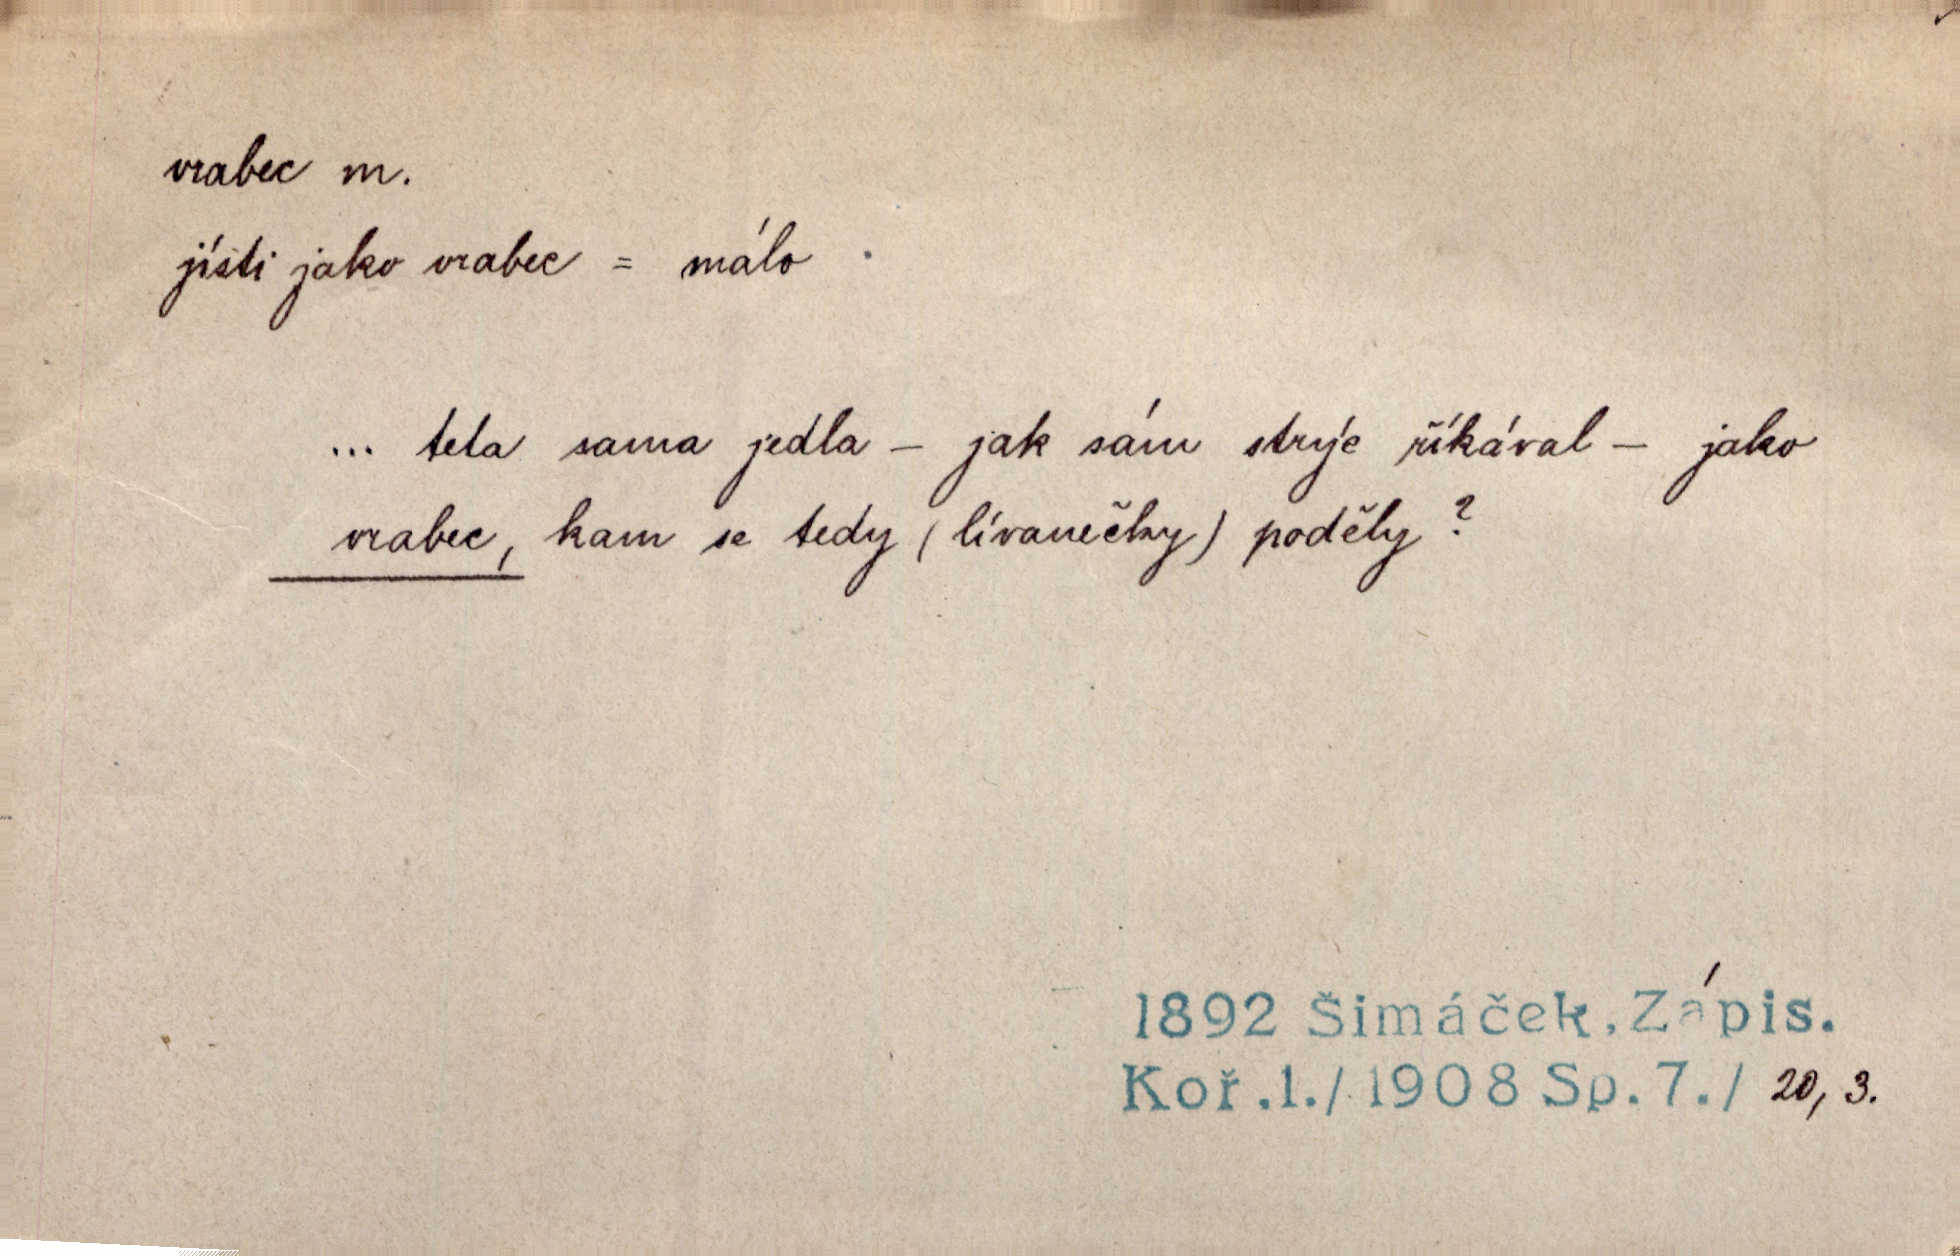 vrabec m.
jísti jako vrabec = málo
... teta sama jedla – jak sám strýc říkával – jako
vrabec, kam se tedy (lívanečky) poděly?
1892 Šimáček, Zápis.
Koř.1./1908 Sp.7./ 20, 3.